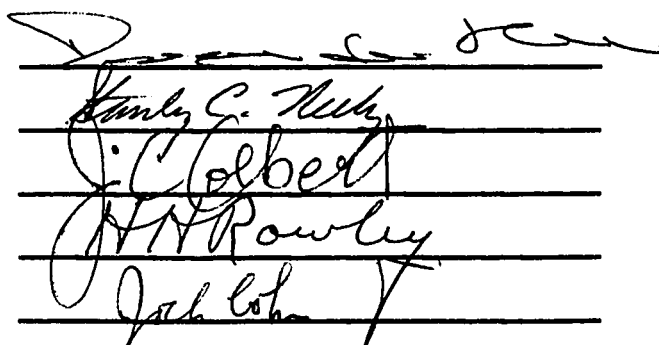 Stanley C. Neely
J. C. Colbert
H H Rowley
Jack Cohn